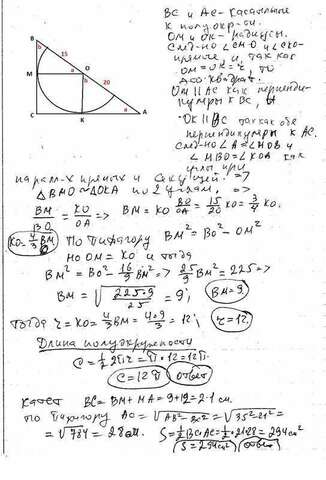 BC и AC - касательные
к полуокр-си.
OM и OK - радиусы.
След-но ∠CMO и ∠CKO-
прямые, и так как
OM = OK = r, то
квадрат.
OM || AC как перпенди-
куляры к BC, и
OK || BC так как оба
перпендикуляры к AC.
След-но ∠A = ∠MOB и
∠MBO = ∠KOA как
углы при
парал-х прямых и секущей. =>
△BMO ~ △OKA по 2 углам, =>
BM/BO = KO/OA => BM = KO BO/OA = 15/20 KO = 3/4 KO.
KO = 4/3 BM По Пифагору BM² = BO² - OM²
Но OM = KO и тогда
BM² = BO² - 16/9 BM² => 25/9 BM² = 225 =>
BM = √(225·9/25) = 9; BM = 9.
Тогда r = KO = 4/3 BM = 4·9/3 = 12; r = 12.
Длина полуокружности
C = 1/2 2πr = π·12 = 12π.
C = 12π ответ
Катет BC = BM + MA = 9 + 12 = 21 см.
По Пифагору AC = √(AB² - BC²) = √(35² - 21²) =
= √784 = 28 см. S = 1/2 BC·AC = 1/2·21·28 = 294 см²
S = 294 см² ответ
B
b
15
M
a
O
b
20
C
K
a
A